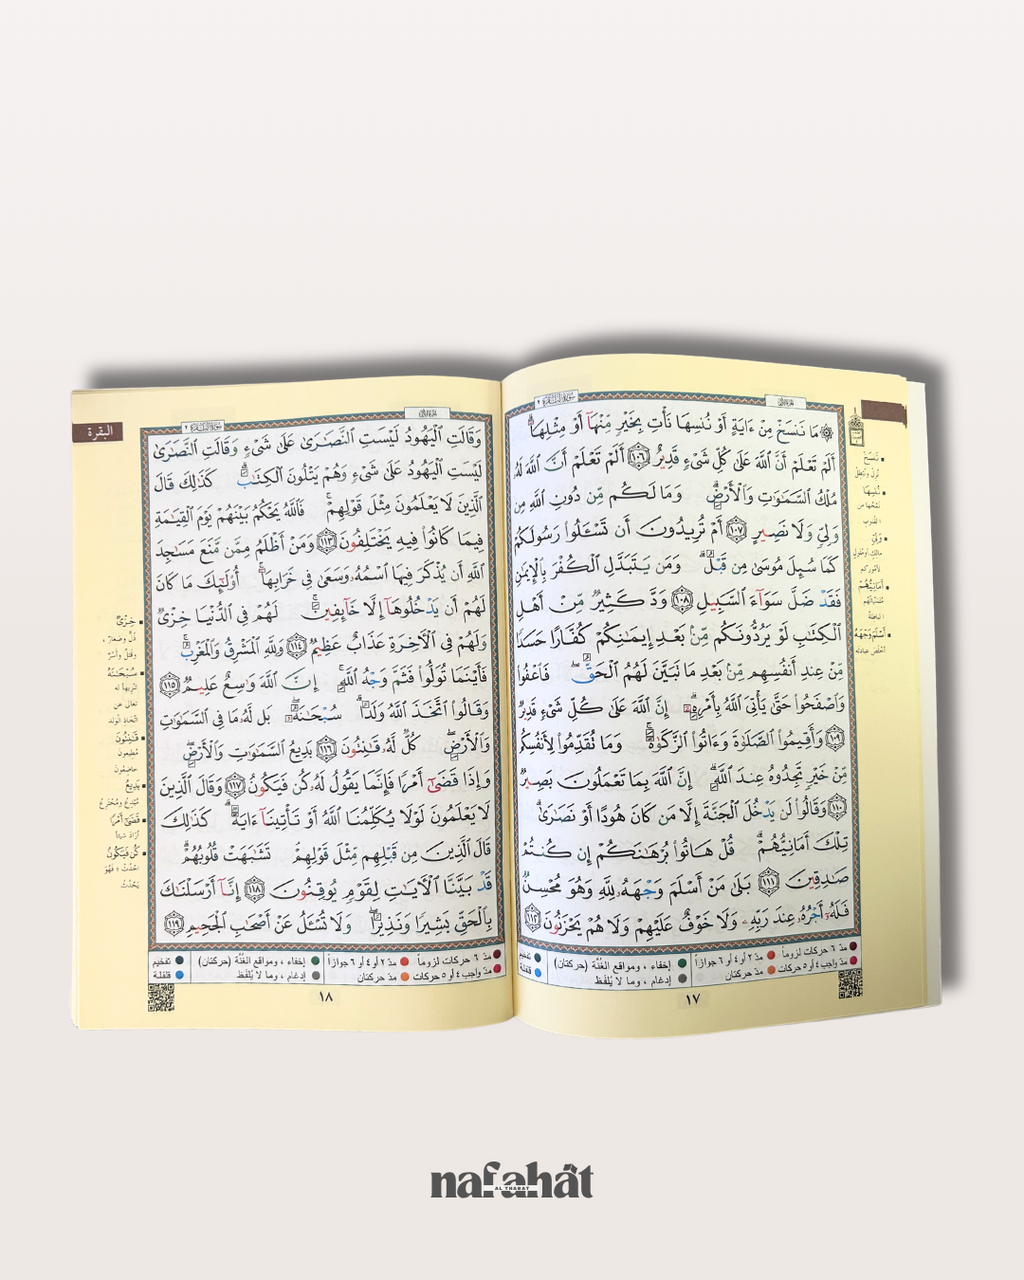 سورة البقرة ٢
الجزء الأول
۞ مَا نَنسَخْ مِنْ ءَايَةٍ أَوْ نُنسِهَا نَأْتِ بِخَيْرٍ مِّنْهَآ أَوْ مِثْلِهَآ ۗ
أَلَمْ تَعْلَمْ أَنَّ ٱللَّهَ عَلَىٰ كُلِّ شَىْءٍ قَدِيرٌ ﴿١٠٦﴾ أَلَمْ تَعْلَمْ أَنَّ ٱللَّهَ لَهُۥ
مُلْكُ ٱلسَّمَـٰوَٰتِ وَٱلْأَرْضِ ۗ وَمَا لَكُم مِّن دُونِ ٱللَّهِ مِن
وَلِىٍّ وَلَا نَصِيرٍ ﴿١٠٧﴾ أَمْ تُرِيدُونَ أَن تَسْـَٔلُوا۟ رَسُولَكُمْ
كَمَا سُئِلَ مُوسَىٰ مِن قَبْلُ ۗ وَمَن يَتَبَدَّلِ ٱلْكُفْرَ بِٱلْإِيمَـٰنِ
فَقَدْ ضَلَّ سَوَآءَ ٱلسَّبِيلِ ﴿١٠٨﴾ وَدَّ كَثِيرٌ مِّنْ أَهْلِ
ٱلْكِتَـٰبِ لَوْ يَرُدُّونَكُم مِّنۢ بَعْدِ إِيمَـٰنِكُمْ كُفَّارًا حَسَدًا
مِّنْ عِندِ أَنفُسِهِم مِّنۢ بَعْدِ مَا تَبَيَّنَ لَهُمُ ٱلْحَقُّ ۖ فَٱعْفُوا۟
وَٱصْفَحُوا۟ حَتَّىٰ يَأْتِىَ ٱللَّهُ بِأَمْرِهِۦٓ ۗ إِنَّ ٱللَّهَ عَلَىٰ كُلِّ شَىْءٍ قَدِيرٌ
﴿١٠٩﴾ وَأَقِيمُوا۟ ٱلصَّلَوٰةَ وَءَاتُوا۟ ٱلزَّكَوٰةَ ۚ وَمَا تُقَدِّمُوا۟ لِأَنفُسِكُم
مِّنْ خَيْرٍ تَجِدُوهُ عِندَ ٱللَّهِ ۗ إِنَّ ٱللَّهَ بِمَا تَعْمَلُونَ بَصِيرٌ
﴿١١٠﴾ وَقَالُوا۟ لَن يَدْخُلَ ٱلْجَنَّةَ إِلَّا مَن كَانَ هُودًا أَوْ نَصَـٰرَىٰ ۗ
تِلْكَ أَمَانِيُّهُمْ ۗ قُلْ هَاتُوا۟ بُرْهَـٰنَكُمْ إِن كُنتُمْ
صَـٰدِقِينَ ﴿١١١﴾ بَلَىٰ مَنْ أَسْلَمَ وَجْهَهُۥ لِلَّهِ وَهُوَ مُحْسِنٌ
فَلَهُۥٓ أَجْرُهُۥ عِندَ رَبِّهِۦ وَلَا خَوْفٌ عَلَيْهِمْ وَلَا هُمْ يَحْزَنُونَ ﴿١١٢﴾
نَنسَخْ
نُنسِهَا
أَمَانِيُّهُمْ
أَسْلَمَ وَجْهَهُ
أخلص عبادته
مدّ ٦ حركات لزوماً مدّ ٢ أو ٤ أو ٦ جوازاً إخفاء ، ومواقع الغُنَّة (حركتان) تفخيم
مدّ واجب ٤ أو ٥ حركات مدّ حركتان إدغام ، وما لا يُلفَظ قلقلة
١٧
البقرة
سورة البقرة ٢
الجزء الأول
وَقَالَتِ ٱلْيَهُودُ لَيْسَتِ ٱلنَّصَـٰرَىٰ عَلَىٰ شَىْءٍ وَقَالَتِ ٱلنَّصَـٰرَىٰ
لَيْسَتِ ٱلْيَهُودُ عَلَىٰ شَىْءٍ وَهُمْ يَتْلُونَ ٱلْكِتَـٰبَ ۗ كَذَٰلِكَ قَالَ
ٱلَّذِينَ لَا يَعْلَمُونَ مِثْلَ قَوْلِهِمْ ۚ فَٱللَّهُ يَحْكُمُ بَيْنَهُمْ يَوْمَ ٱلْقِيَـٰمَةِ
فِيمَا كَانُوا۟ فِيهِ يَخْتَلِفُونَ ﴿١١٣﴾ وَمَنْ أَظْلَمُ مِمَّن مَّنَعَ مَسَـٰجِدَ
ٱللَّهِ أَن يُذْكَرَ فِيهَا ٱسْمُهُۥ وَسَعَىٰ فِى خَرَابِهَآ ۚ أُو۟لَـٰٓئِكَ مَا كَانَ
لَهُمْ أَن يَدْخُلُوهَآ إِلَّا خَآئِفِينَ ۚ لَهُمْ فِى ٱلدُّنْيَا خِزْىٌ
وَلَهُمْ فِى ٱلْـَٔاخِرَةِ عَذَابٌ عَظِيمٌ ﴿١١٤﴾ وَلِلَّهِ ٱلْمَشْرِقُ وَٱلْمَغْرِبُ ۚ
فَأَيْنَمَا تُوَلُّوا۟ فَثَمَّ وَجْهُ ٱللَّهِ ۚ إِنَّ ٱللَّهَ وَٰسِعٌ عَلِيمٌ ﴿١١٥﴾
وَقَالُوا۟ ٱتَّخَذَ ٱللَّهُ وَلَدًا ۗ سُبْحَـٰنَهُۥ ۖ بَل لَّهُۥ مَا فِى ٱلسَّمَـٰوَٰتِ
وَٱلْأَرْضِ ۖ كُلٌّ لَّهُۥ قَـٰنِتُونَ ﴿١١٦﴾ بَدِيعُ ٱلسَّمَـٰوَٰتِ وَٱلْأَرْضِ ۖ
وَإِذَا قَضَىٰٓ أَمْرًا فَإِنَّمَا يَقُولُ لَهُۥ كُن فَيَكُونُ ﴿١١٧﴾ وَقَالَ ٱلَّذِينَ
لَا يَعْلَمُونَ لَوْلَا يُكَلِّمُنَا ٱللَّهُ أَوْ تَأْتِينَآ ءَايَةٌ ۗ كَذَٰلِكَ
قَالَ ٱلَّذِينَ مِن قَبْلِهِم مِّثْلَ قَوْلِهِمْ ۘ تَشَـٰبَهَتْ قُلُوبُهُمْ ۗ
قَدْ بَيَّنَّا ٱلْـَٔايَـٰتِ لِقَوْمٍ يُوقِنُونَ ﴿١١٨﴾ إِنَّآ أَرْسَلْنَـٰكَ
بِٱلْحَقِّ بَشِيرًا وَنَذِيرًا ۖ وَلَا تُسْـَٔلُ عَنْ أَصْحَـٰبِ ٱلْجَحِيمِ ﴿١١٩﴾
خِزْىٌ
سُبْحَـٰنَهُ
تنزيهاً له
تعالى عن
اتخاذ الولد
قَـٰنِتُونَ
مطيعون
خاضعون
بَدِيعُ
مُبْدِعُ ومُخْتَرِعُ
قَضَىٰٓ أَمْرًا
أراد شيئاً
كُن فَيَكُونُ
احْدُثْ ؛ فهُوَ
يَحْدُثُ
مدّ ٦ حركات لزوماً مدّ ٢ أو ٤ أو ٦ جوازاً إخفاء ، ومواقع الغُنَّة (حركتان) تفخيم
مدّ واجب ٤ أو ٥ حركات مدّ حركتان إدغام ، وما لا يُلفَظ قلقلة
١٨
nafahât
AL THABAT